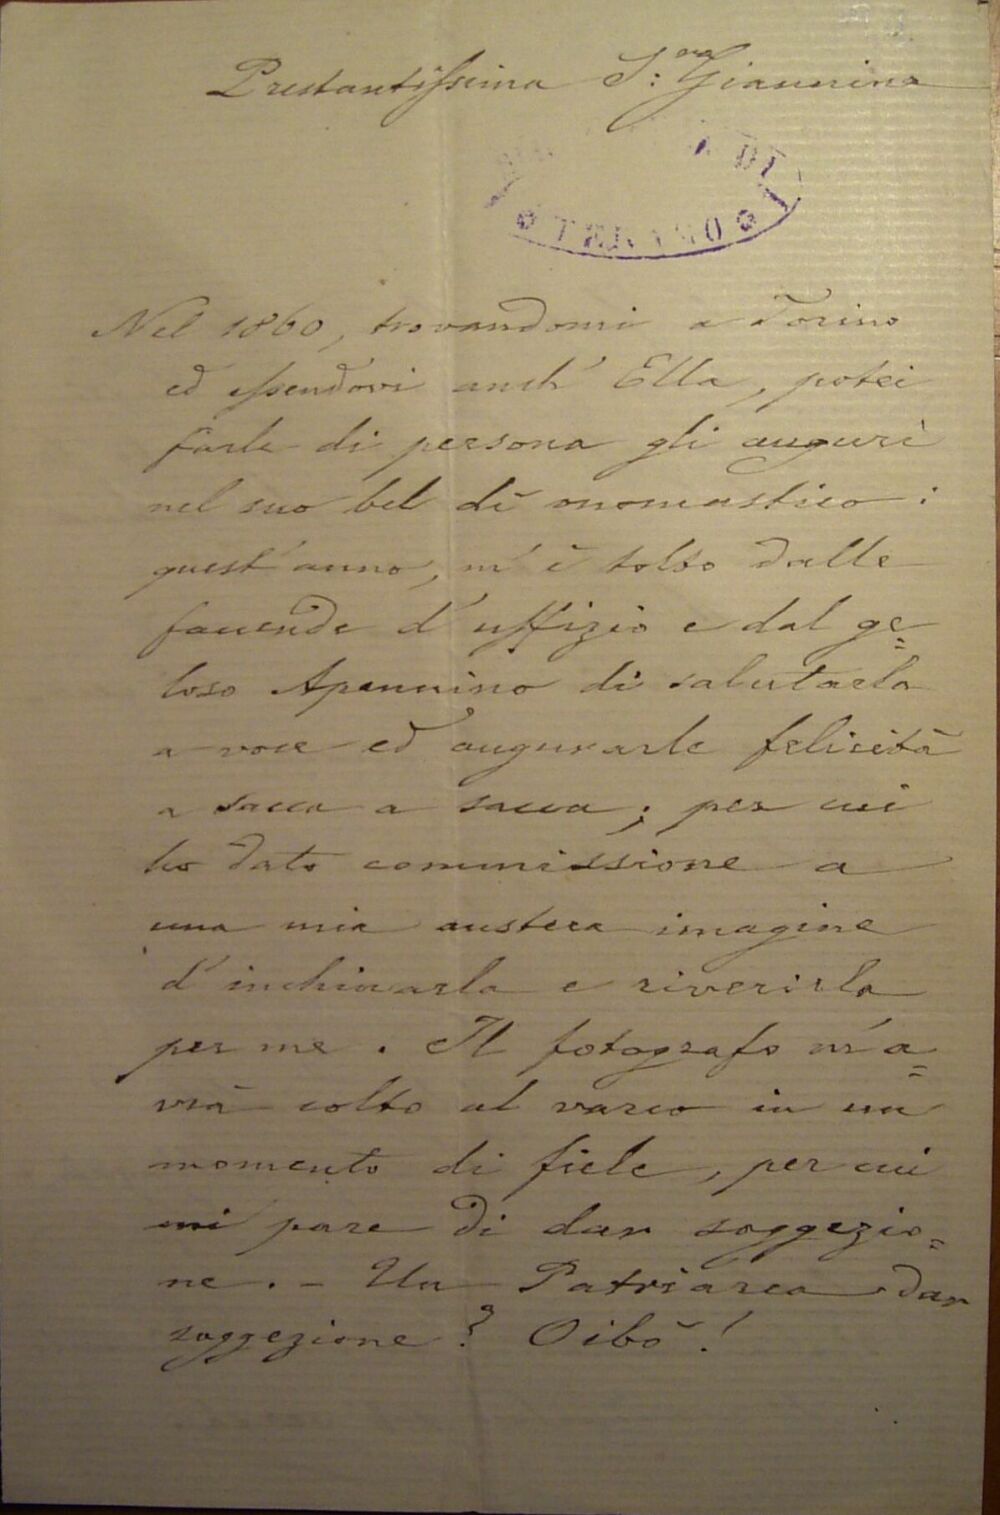 Prestantissima S:ra Giannina
DI
TERAMO
Nel 1860, trovandomi a Torino
ed essendovi anch' Ella, potei
farle di persona gli auguri
nel suo bel dì onomastico:
quest'anno, m'è tolto dalle
faccende d'uffizio e dal ge=
loso Apennino di salutarla
a voce ed augurarle felicità
a sacca a sacca; per cui
ho dato commissione a
una mia austera imagine
d'inchinarla e riverirla
per me. Il fotografo m'a=
vrà colto al varco in un
momento di fiele, per cui
mi pare di dar soggezio=
ne. - Un Patriarca dar
soggezione? Oibò!